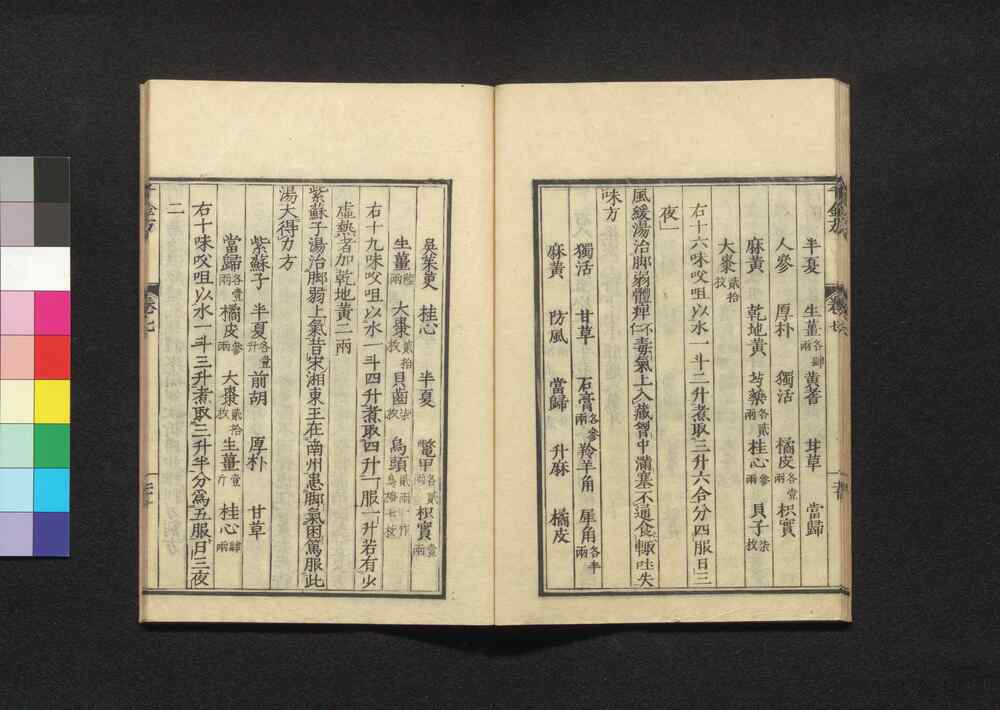 半夏 生薑各肆兩 黃蓍 甘草 當歸
人參 厚朴 獨活 橘皮各壹兩 枳實
麻黃 乾地黃 芍藥各貳兩 桂心參兩 貝子柒枚
大棗貳拾枚
右十六味㕮咀以水一斗二升煮取三升六合分四服日三
夜一
風緩湯治脚弱體痺不仁毒氣上入藏胷中滿塞不通食輙吐失
味方
獨活 甘草 石膏各參兩 羚羊角 犀角各半兩
麻黃 防風 當歸 升麻 橘皮
吳茱萸 桂心 半夏 鼈甲各貳兩 枳實壹兩
生薑陸兩 大棗貳拾枚 貝齒柒枚 烏頭貳兩
右十九味㕮咀以水一斗四升煮取四升一服一升若有少
虛熱者加乾地黃二兩
紫蘇子湯治脚弱上氣昔宋湘東王在南州患脚氣困篤服此
湯大得力方
紫蘇子 半夏各壹升 前胡 厚朴 甘草
當歸各壹兩 橘皮參兩 大棗貳拾枚 生薑壹斤 桂心肆兩
右十味㕮咀以水一斗三升煮取三升半分爲五服日三夜
二